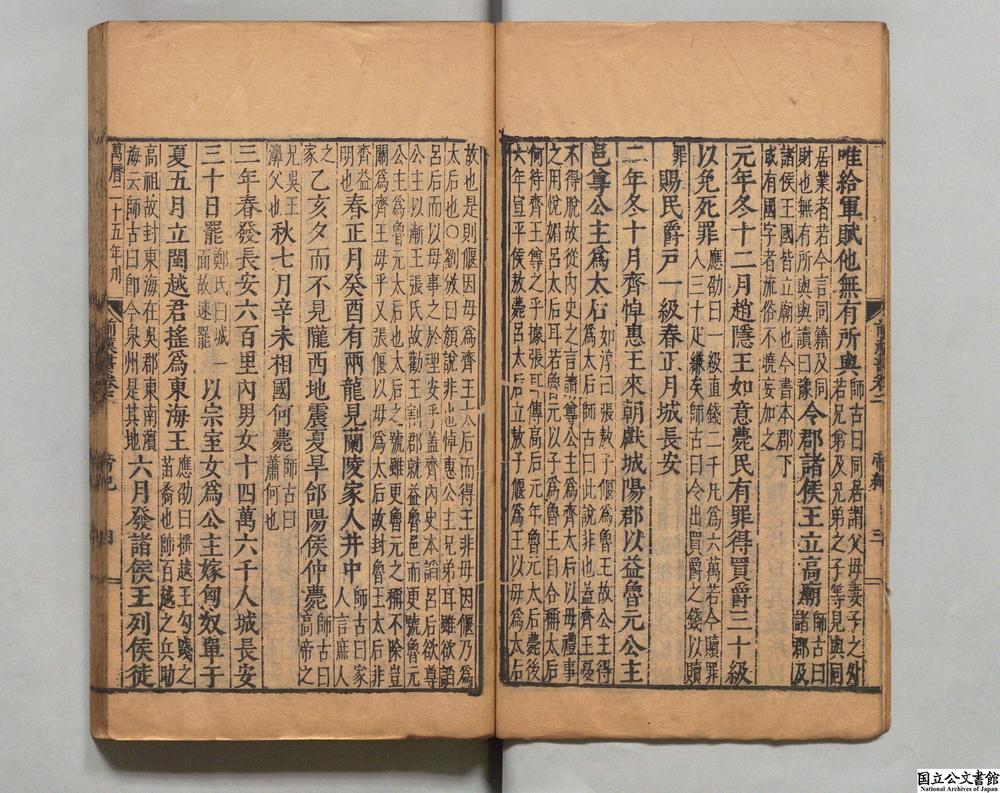 唯給軍賦他無有所與師古曰同居謂父母妻子之外
若兄弟及兄弟之子等見與同
居業者若今言同籍及同
財也無有所與與讀曰豫令郡諸侯王立高廟師古曰
諸郡及
諸侯王國皆立廟也今書本郡下
或有國字者流俗不曉妄加之
元年冬十二月趙隱王如意薨民有罪得買爵三十級
以免死罪應劭曰一級直錢二千凡爲六萬若今贖罪
入三十疋縑矣師古曰令出買爵之錢以贖
罪賜民爵戶一級春正月城長安
二年冬十月齊悼惠王來朝獻城陽郡以益魯元公主
邑尊公主爲太后如淳曰張敖子偃爲魯王故公主得
爲太后師古曰此說非也蓋齊王憂
不得脫故從內史之言請尊公主爲齊太后以母禮事
之用悅媚呂太后耳若魯元以子爲魯王自合稱太后
何待齊王尊之乎據張耳傳高后元年魯元太后薨後
六年宣平侯敖薨呂太后立敖子偃爲魯王以母爲太后
前漢書卷二 帝紀 三
故也是則偃因母爲齊王太后而得王非母因偃乃爲
太后也○劉攽曰顏說非也悼惠公主兄弟耳雖欲諂
呂后而以母事之於理安乎蓋齊內史本論呂后欲尊
公主以漸王張氏故勸王割郡就益魯邑而更號魯元
公主爲魯元太后也太后之號雖更魯元之稱不除豈
關爲齊王母乎又張偃以母爲太后故封魯王太后非
齊益
明也春正月癸酉有兩龍見蘭陵家人井中師古曰家
人言庶人
之家乙亥夕而不見隴西地震夏旱郃陽侯仲薨師古曰
高帝之
兄吳王
濞父也秋七月辛未相國何薨師古曰
蕭何也
三年春發長安六百里內男女十四萬六千人城長安
三十日罷鄭氏曰城一
面故速罷以宗室女爲公主嫁匈奴單于
夏五月立閩越君搖爲東海王應劭曰搖越王勾踐之
苗裔也帥百越之兵助
高祖故封東海在吳郡東南濱
海云師古曰即今泉州是其地六月發諸侯王列侯徒
萬曆二十五年刊 前漢書卷二 帝紀 四
国立公文書館
National Archives of Japan